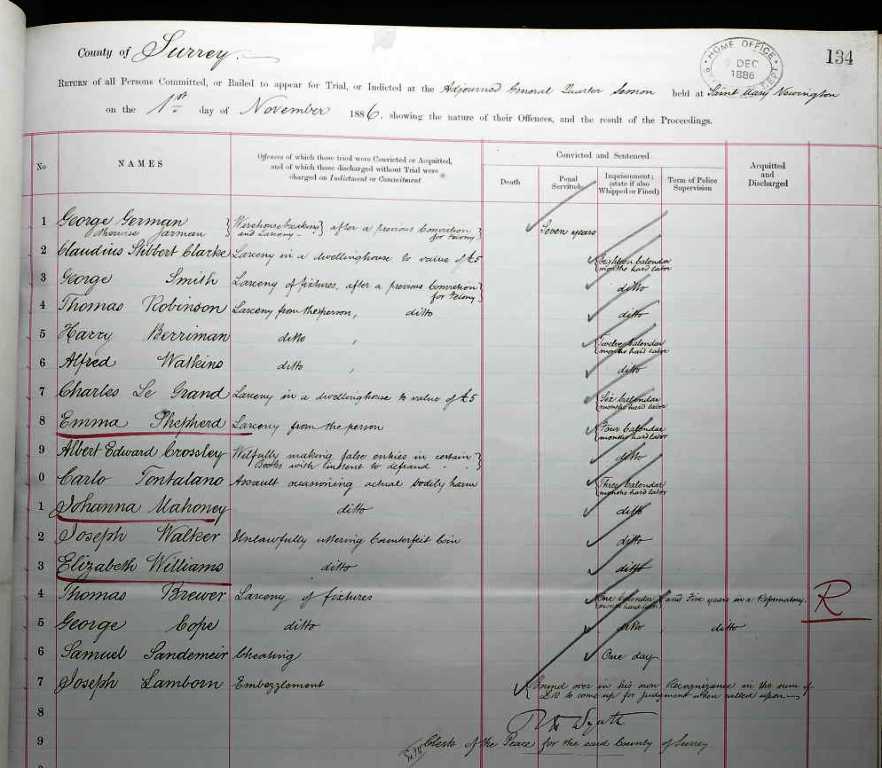 County of Surrey
HOME OFFICE
DEC
1886
134
RETURN of all Persons Committed, or Bailed to appear for Trial, or Indicted at the Adjourned General Quarter Session held at Saint Mary Newington
on the 1st day of November 1886, showing the nature of their Offences, and the result of the Proceedings.
No
NAMES
Offences of which those tried were Convicted or Acquitted,
and of which those discharged without Trial were
charged on Indictment or Commitment
Convicted and Sentenced
Death
Penal
Servitude
Imprisonment;
(state if also
Whipped or Fined)
Term of Police
Supervision
Acquitted
and
Discharged
1 George German Warehousebreaking after a previous Conviction Seven years
otherwise Jarman and Larceny for felony
2 Claudius Stibbert Clarke Larceny in a dwellinghouse to value of £5 Eighteen Calendar
months hard labor
3 George Smith Larceny of fixtures, after a previous Conviction ditto
for felony
4 Thomas Robinson Larceny from the person, ditto ditto
5 Harry Berriman ditto , Twelve Calendar
months hard labor
6 Alfred Watkins ditto , ditto
7 Charles Le Grand Larceny in a dwellinghouse to value of £5 Six Calendar
months hard labor
8 Emma Shepherd Larceny from the person Four Calendar
months hard labor
9 Albert Edward Crossley Wilfully making false entries in certain ditto
Books with intent to defraud
0 Carlo Assault occasioning actual bodily harm Three Calendar
months hard labor
1 Johanna Mahoney ditto ditto
2 Joseph Walker Unlawfully uttering Counterfeit Coin ditto
3 Elizabeth Williams ditto ditto
4 Thomas Brewer Larceny of fixtures One Calendar and Five years in a Reformatory. R
month hard labor
5 George Cope ditto ditto ditto
6 Samuel Cheating One day
7 Joseph Lamborn Embezzlement Bound over in his own Recognizance in the sum of
£10 to come up for judgment when called upon
8
Wyatt
9 Clerk of the Peace for the said County of Surrey